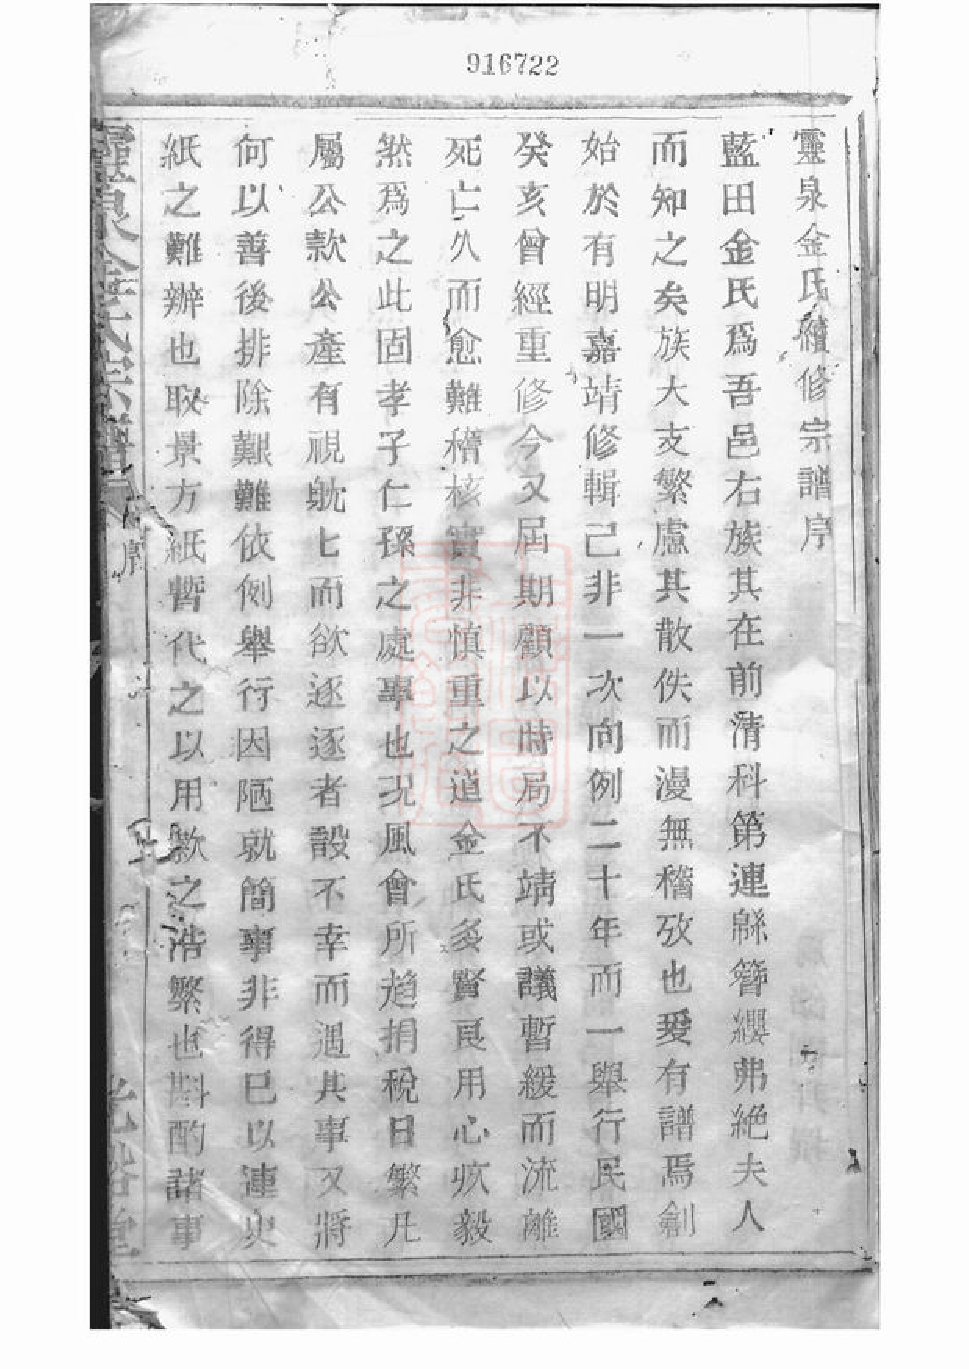 916722
靈泉金氏續修宗譜序
藍田金氏爲吾邑右族其在前清科第連緜簪纓弗絶夫人
而知之矣族大支繁慮其散佚而漫無稽攷也爰有譜焉創
始於有明嘉靖修輯己非一次向例二十年而一舉行民國
癸亥曾經重修今又屆期顧以時局不靖或議暫緩而流離
死亡久而愈難稽核實非慎重之道金氏多賢良用心疚毅
然爲之此固孝子仁孫之處事也况風會所趋捐稅日繁凡
屬公款公產有視躭匕而欲逐逐者設不幸而遇其事又將
何以善後排除艱難依例舉行因陋就簡事非得已以連史
紙之難辦也取景方紙暫代之以用款之浩繁也斟酌諸事
靈泉金氏宗譜
序
光裕堂